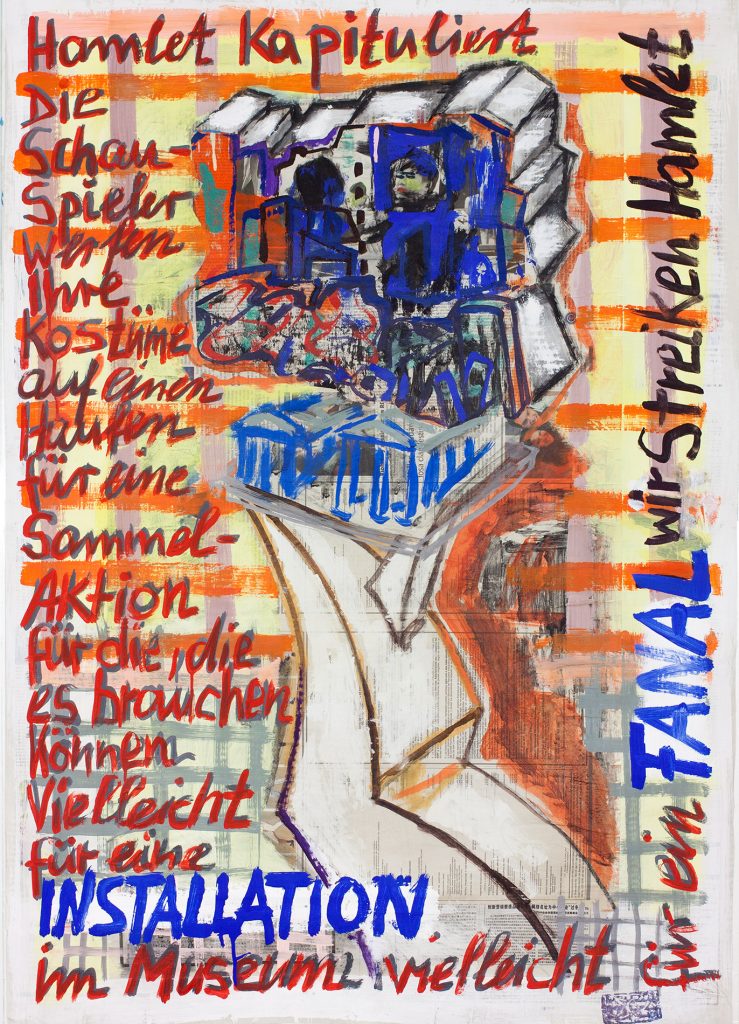 Hamlet Kapituliert
Die
Schau-
Spieler
werfen
ihre
Kostüme
auf einen
Haufen
für eine
Sammel-
AKtion
für die, die
es brauchen
Können
Vielleicht
für eine
INSTALLATION
im Museum vielleicht
für ein FANAL wir Streiken Hamlet